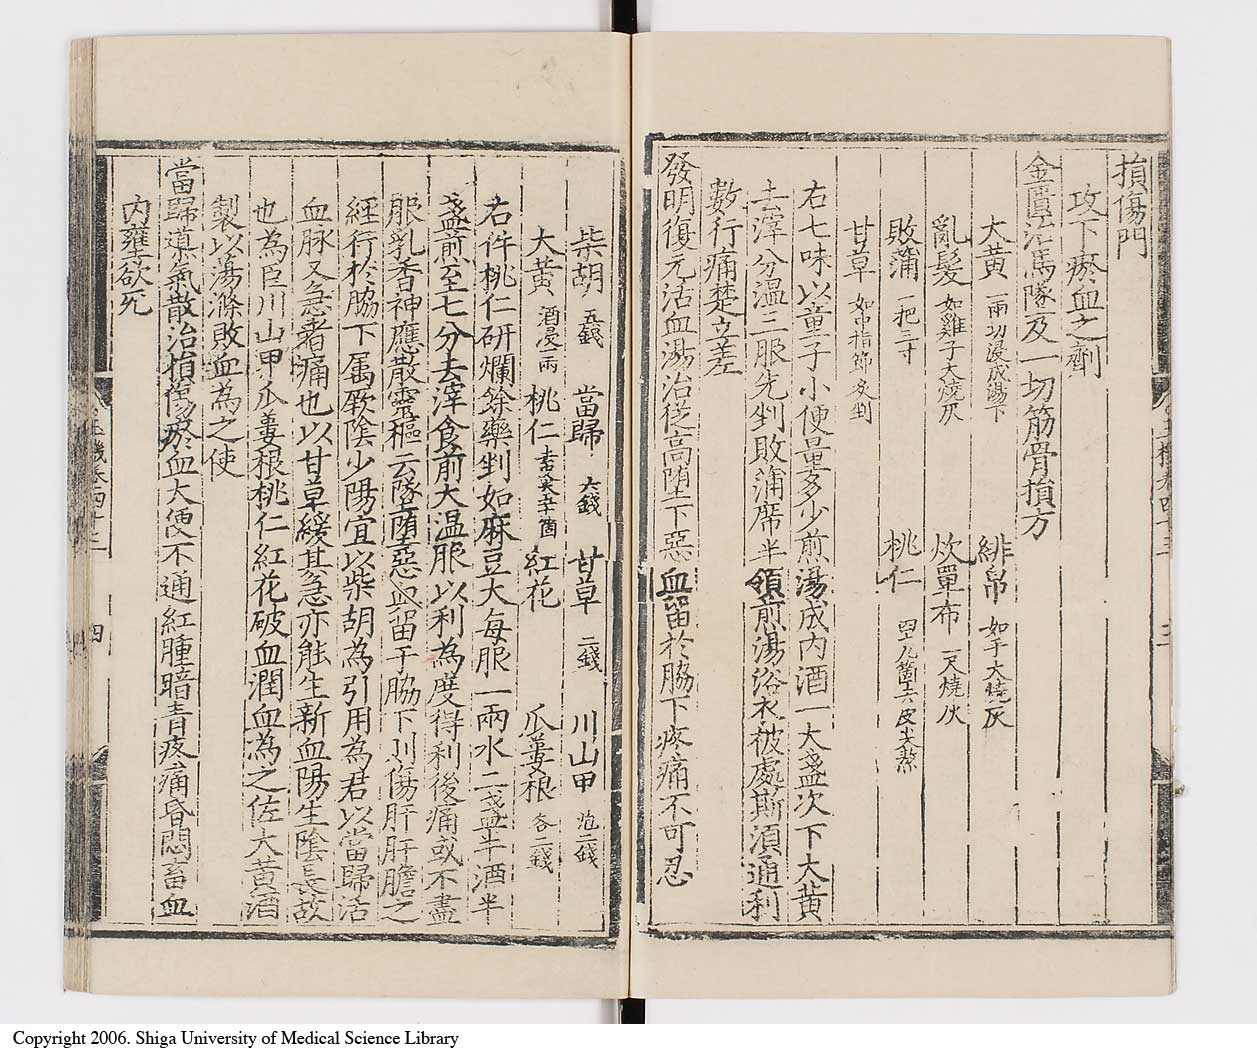 損傷門
攻下瘀血之劑
金匱治馬墜及一切筋骨損方
大黃 一兩切浸成湯下 緋帛 如手大燒灰
亂髮 如雞子大燒灰 炊單布 一尺燒灰
敗蒲 一把三寸 桃仁 四九箇去皮尖熬
甘草 如中指節炙剉
右七味以童子小便量多少煎湯成內酒一大盞次下大黃
去滓分溫三服先剉敗蒲席半領煎湯浴衣被處斯須通利
數行痛楚立差
發明復元活血湯治從高堕下惡血留於脇下疼痛不可忍
柴胡 五錢 當歸 六錢 甘草 二錢 川山甲 炮二錢
大黃 酒浸一兩 桃仁 去皮尖 紅花 瓜蔞根 各二錢
右件桃仁研爛餘藥剉如麻豆大每服一兩水二盞半酒半
盞煎至七分去滓食前大溫服以利為度得利後痛或不盡
服乳香神應散靈樞云墜堕惡血留于脇下則傷肝肝膽之
経行於脇下属厥陰少陽宜以柴胡為引用為君以當歸活
血脉又急者痛也以甘草緩其急亦能生新血陽生陰長故
也為臣川山甲瓜蔞根桃仁紅花破血潤血為之佐大黃酒
製以蕩滌敗血為之使
當歸導氣散治損傷瘀血大便不通紅腫暗青疼痛昏悶畜血
內壅欲死
四
Copyright 2006. Shiga University of Medical Science Library